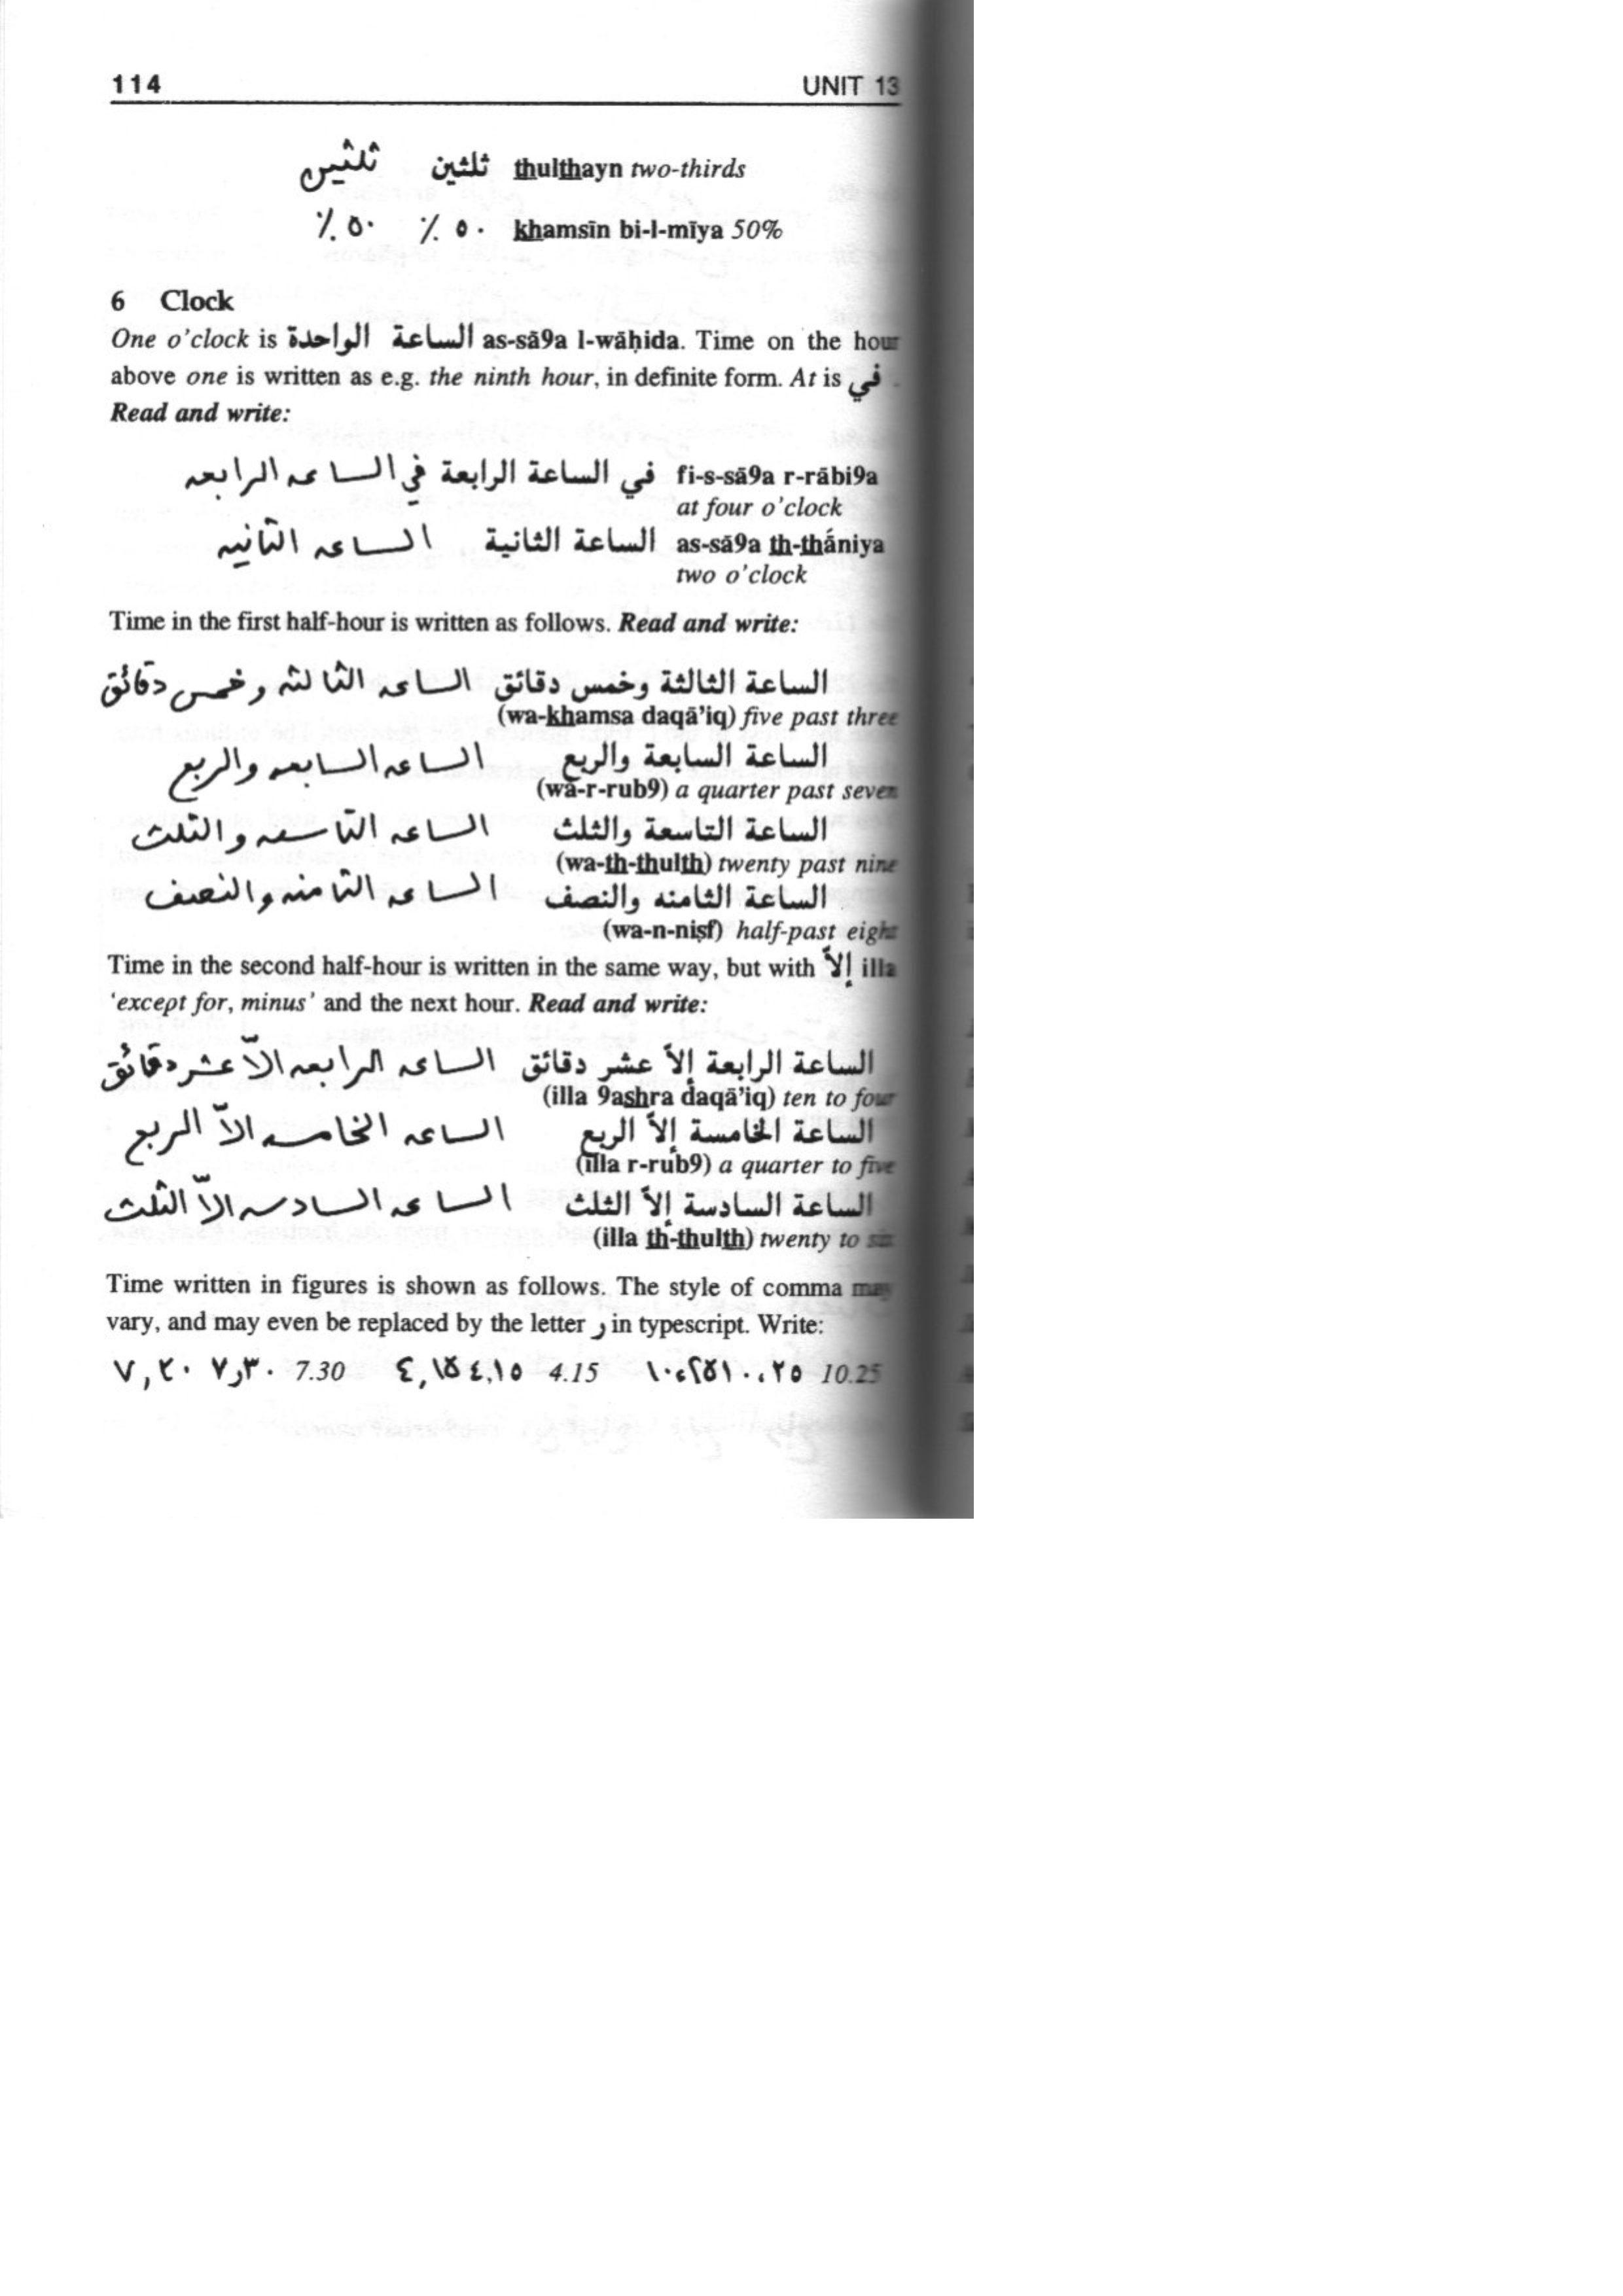 114 UNIT 13
ثلثين ثلثين thulthayn two-thirds
٥٠ ٪ ٥٠ ٪ khamsīn bi-l-mīya 50%
6 Clock
One o'clock is الساعة الواحدة as-sā9a l-wāḥida. Time on the hour
above one is written as e.g. the ninth hour, in definite form. At is في .
Read and write:
في الساعة الرابعة في الساعه الرابعه fi-s-sā9a r-rābi9a
at four o'clock
الساعة الثانية الساعه الثانيه as-sā9a th-thāniya
two o'clock
Time in the first half-hour is written as follows. Read and write:
الساعة الثالثة وخمس دقائق الساعه الثالثه وخمس دقائق
(wa-khamsa daqā'iq) five past three
الساعة السابعة والربع الساعه السابعه والربع
(wa-r-rub9) a quarter past seven
الساعة التاسعة والثلث الساعه التاسعه والثلث
(wa-th-thulth) twenty past nine
الساعة الثامنه والنصف الساعه الثامنه والنصف
(wa-n-niṣf) half-past eight
Time in the second half-hour is written in the same way, but with إلاّ illa
'except for, minus' and the next hour. Read and write:
الساعة الرابعة إلاّ عشر دقائق الساعه الرابعه الاّ عشر دقائق
(illa 9ashra daqā'iq) ten to four
الساعة الخامسة إلاّ الربع الساعه الخامسه الاّ الربع
(illa r-rub9) a quarter to five
الساعة السادسة إلاّ الثلث الساعه السادسه الاّ الثلث
(illa th-thulth) twenty to six
Time written in figures is shown as follows. The style of comma may
vary, and may even be replaced by the letter ر in typescript. Write:
٧,٣٠ ٧ر٣٠ 7.30 ٤,١٥ ٤,١٥ 4.15 ١٠،٢٥ ١٠،٢٥ 10.25